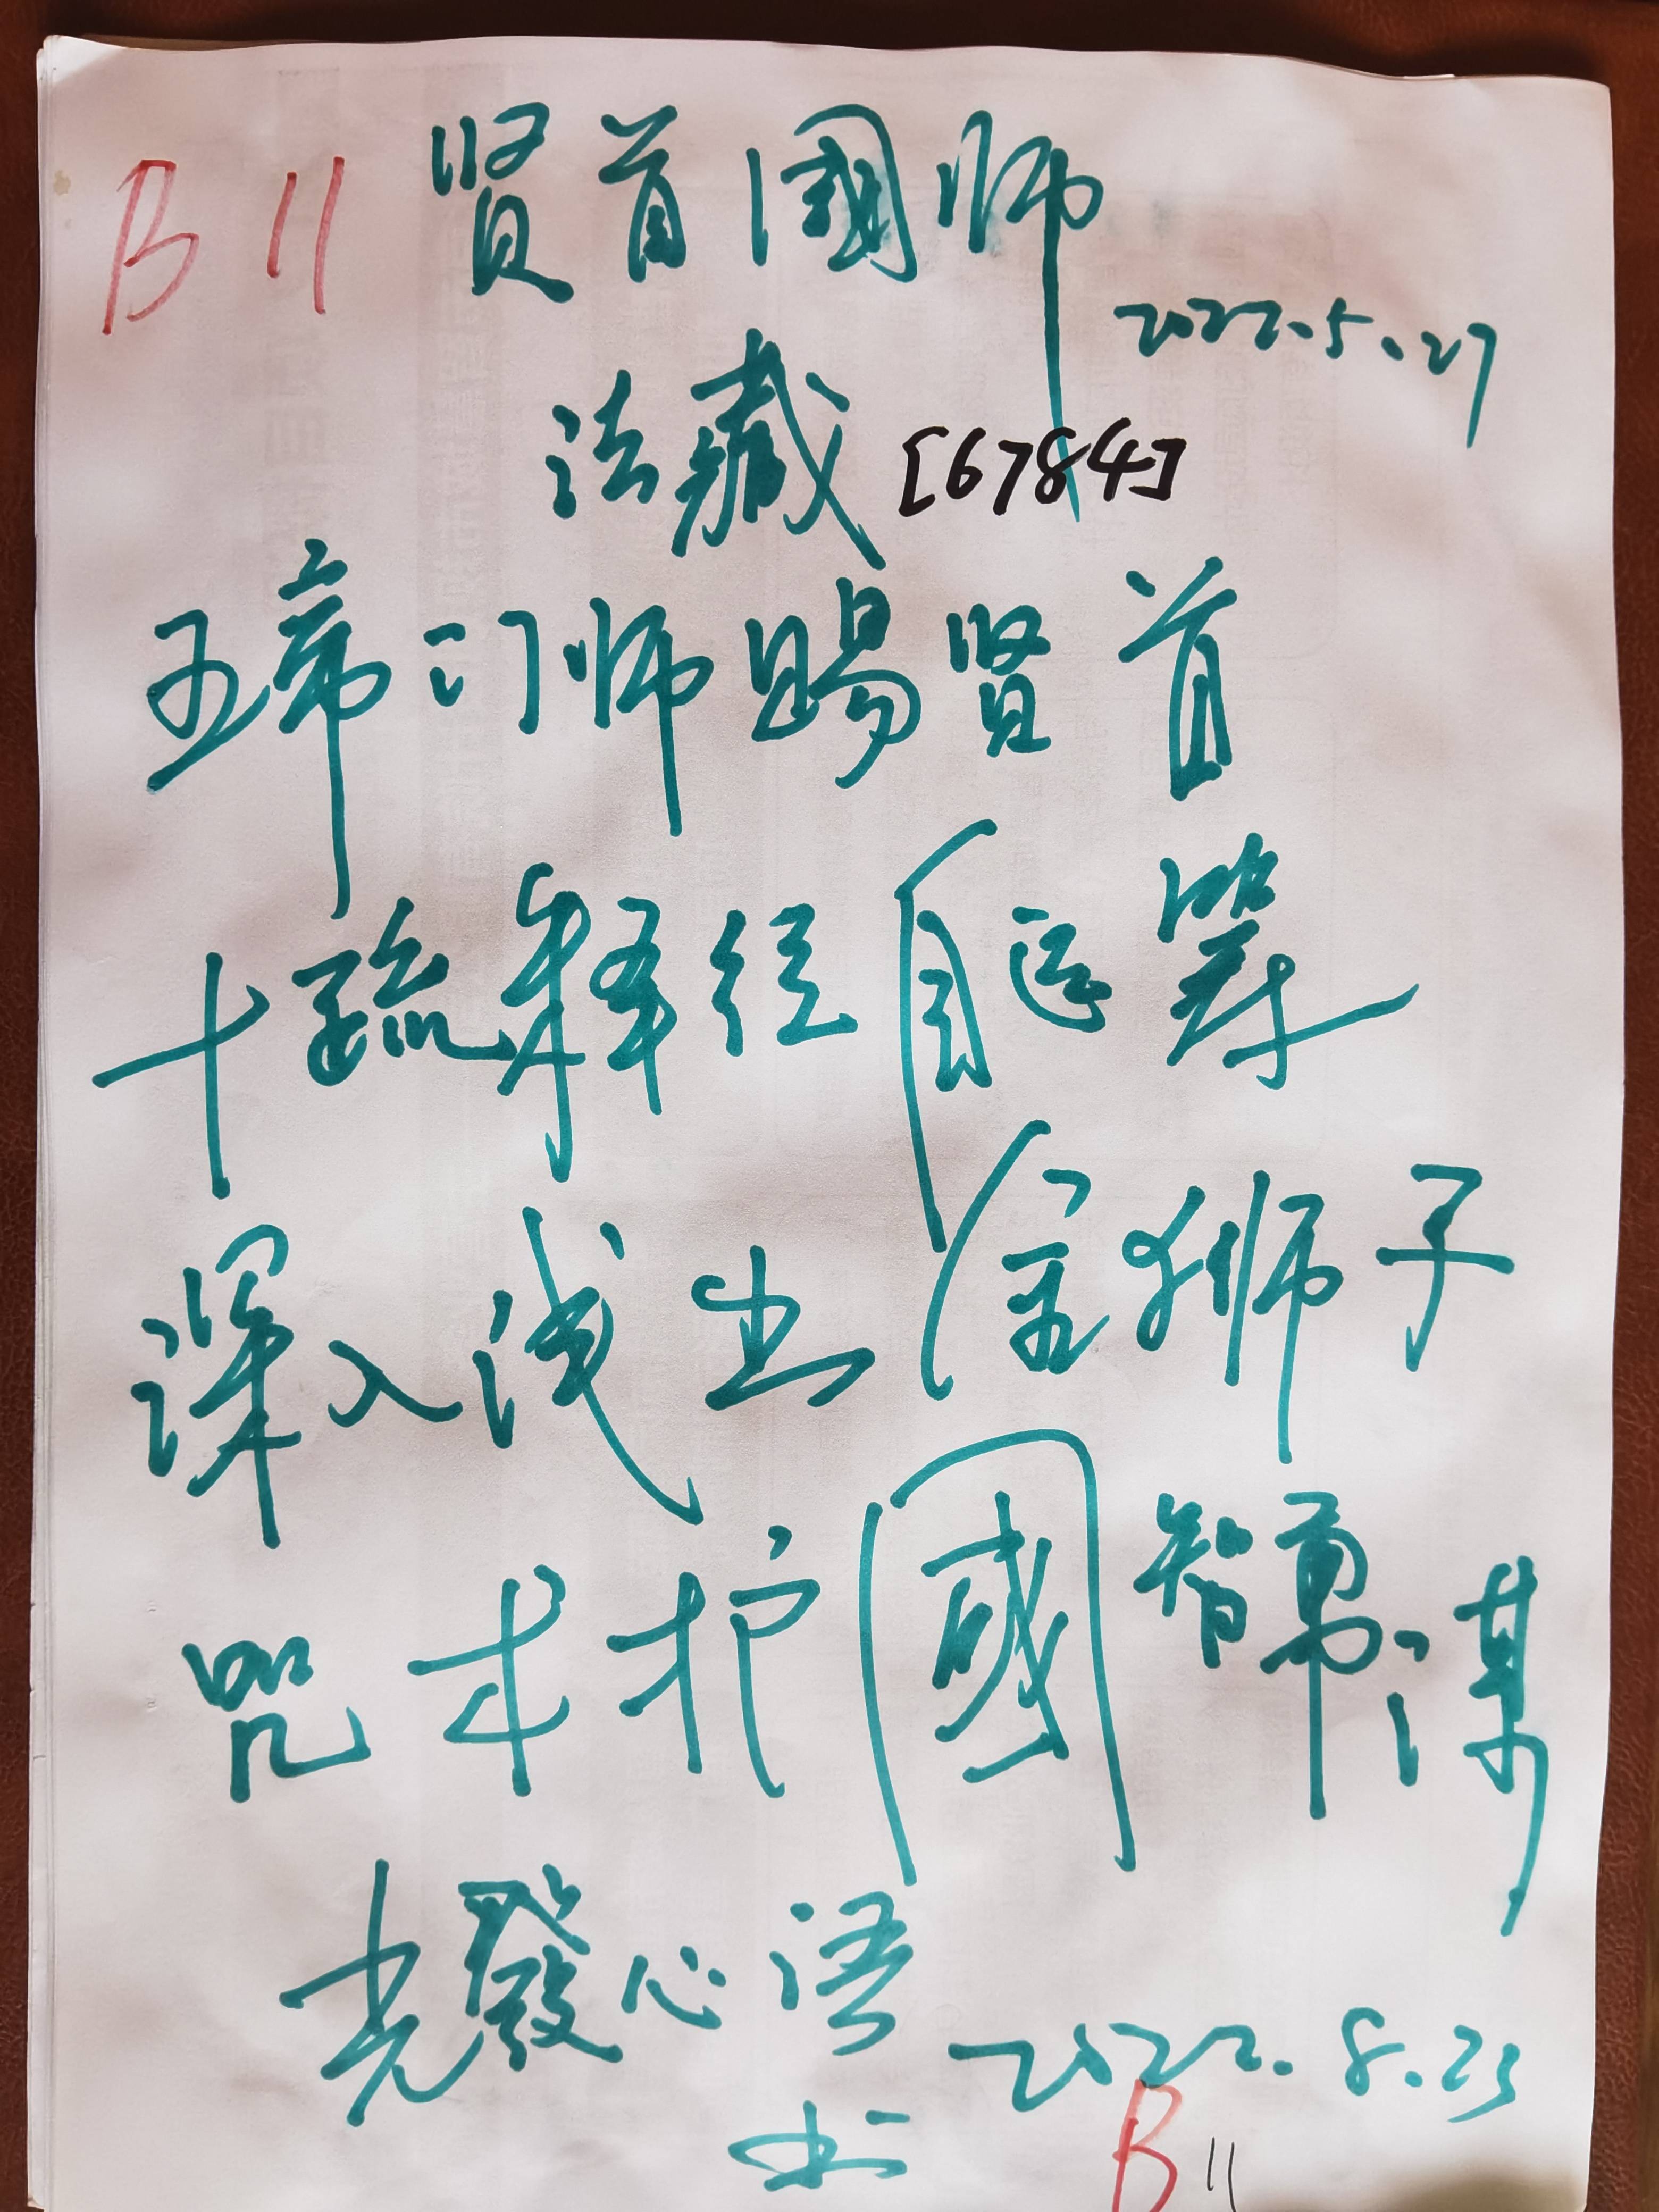 B 11 贤首國师
2022.5.27
法藏 [6784]
五帝门师赐贤首
十疏释经自运筹
深入浅出金狮子
咒术护國智勇谋
光發心语
2022.8.23
书 B 11